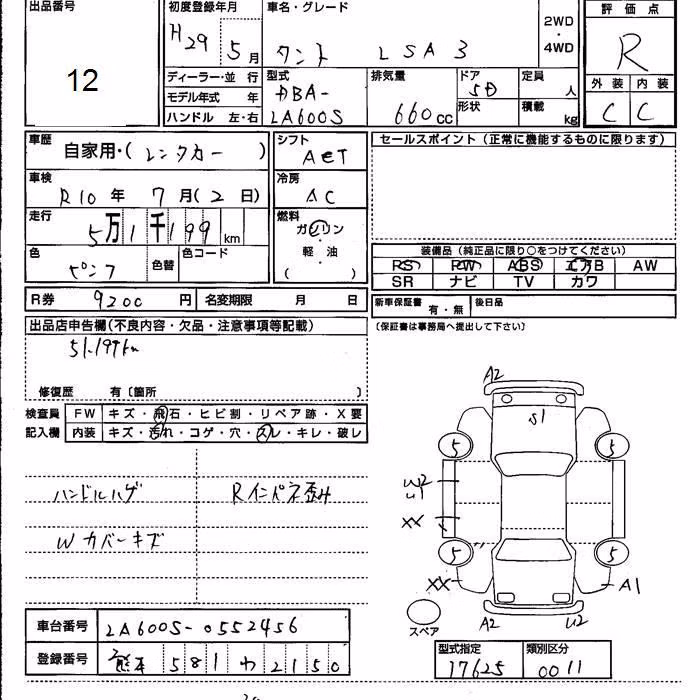 出品番号
12
初度登録年月
H29 5月
車名・グレード
タント LSA 3
2WD
・
4WD
評価点
R
外装 内装
C C
ディーラー・並行
モデル年式 年
ハンドル 左・右
型式
DBA-
LA600S
排気量
660cc
ドア
5D
形状
定員
人
積載
kg
車歴
自家用・(レンタカー)
車検
R10年 7月(2日)
走行
5万1千199km
色
ピンク
色替
色コード
シフト
AT
冷房
AC
燃料
ガソリン
・
軽・油
( )
セールスポイント(正常に機能するものに限ります)
装備品(純正品に限り○をつけてください)
PS PW ABS エアB AW
SR ナビ TV カワ
R券 9200円 名変期限 月 日
新車保証書 有・無 後日品
(保証書は事務局へ提出して下さい)
出品店申告欄(不良内容・欠品・注意事項等記載)
51.199km
修復歴 有〔箇所 〕
検査員 FW キズ・飛石・ヒビ割・リペア跡・X要
記入欄 内装 キズ・汚れ・コゲ・穴・スレ・キレ・破レ
ハンドルハゲ Rインパネ歪み
Wカバーキズ
A2
S1
5 5
W2
U1
XX
5 5
XX A1
スペア
A2 U2
車台番号 LA600S-0552456
登録番号 熊本 581 わ 2150
型式指定 類別区分
17625 0011